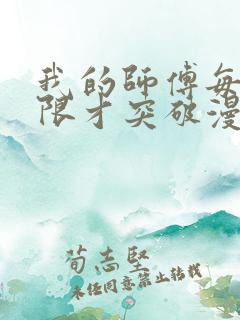 我的師傅每
限才突破漫
荀志堅
未經同意禁止轉載